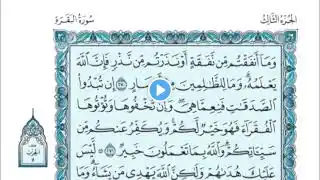 الجزء الثالث
سورة البقرة
وَمَا أَنفَقْتُم مِّن نَّفَقَةٍ أَوْ نَذَرْتُم مِّن نَّذْرٍ فَإِنَّ اللَّهَ
يَعْلَمُهُ وَمَا لِلظَّالِمِينَ مِنْ أَنصَارٍ إِن تُبْدُوا
الصَّدَقَاتِ فَنِعِمَّا هِيَ وَإِن تُخْفُوهَا وَتُؤْتُوهَا
الْفُقَرَاءَ فَهُوَ خَيْرٌ لَّكُمْ وَيُكَفِّرُ عَنكُم مِّن
سَيِّئَاتِكُمْ وَاللَّهُ بِمَا تَعْمَلُونَ خَبِيرٌ لَّيْسَ
عَلَيْكَ هُدَاهُمْ وَلَٰكِنَّ اللَّهَ يَهْدِي مَن يَشَاءُ وَمَا